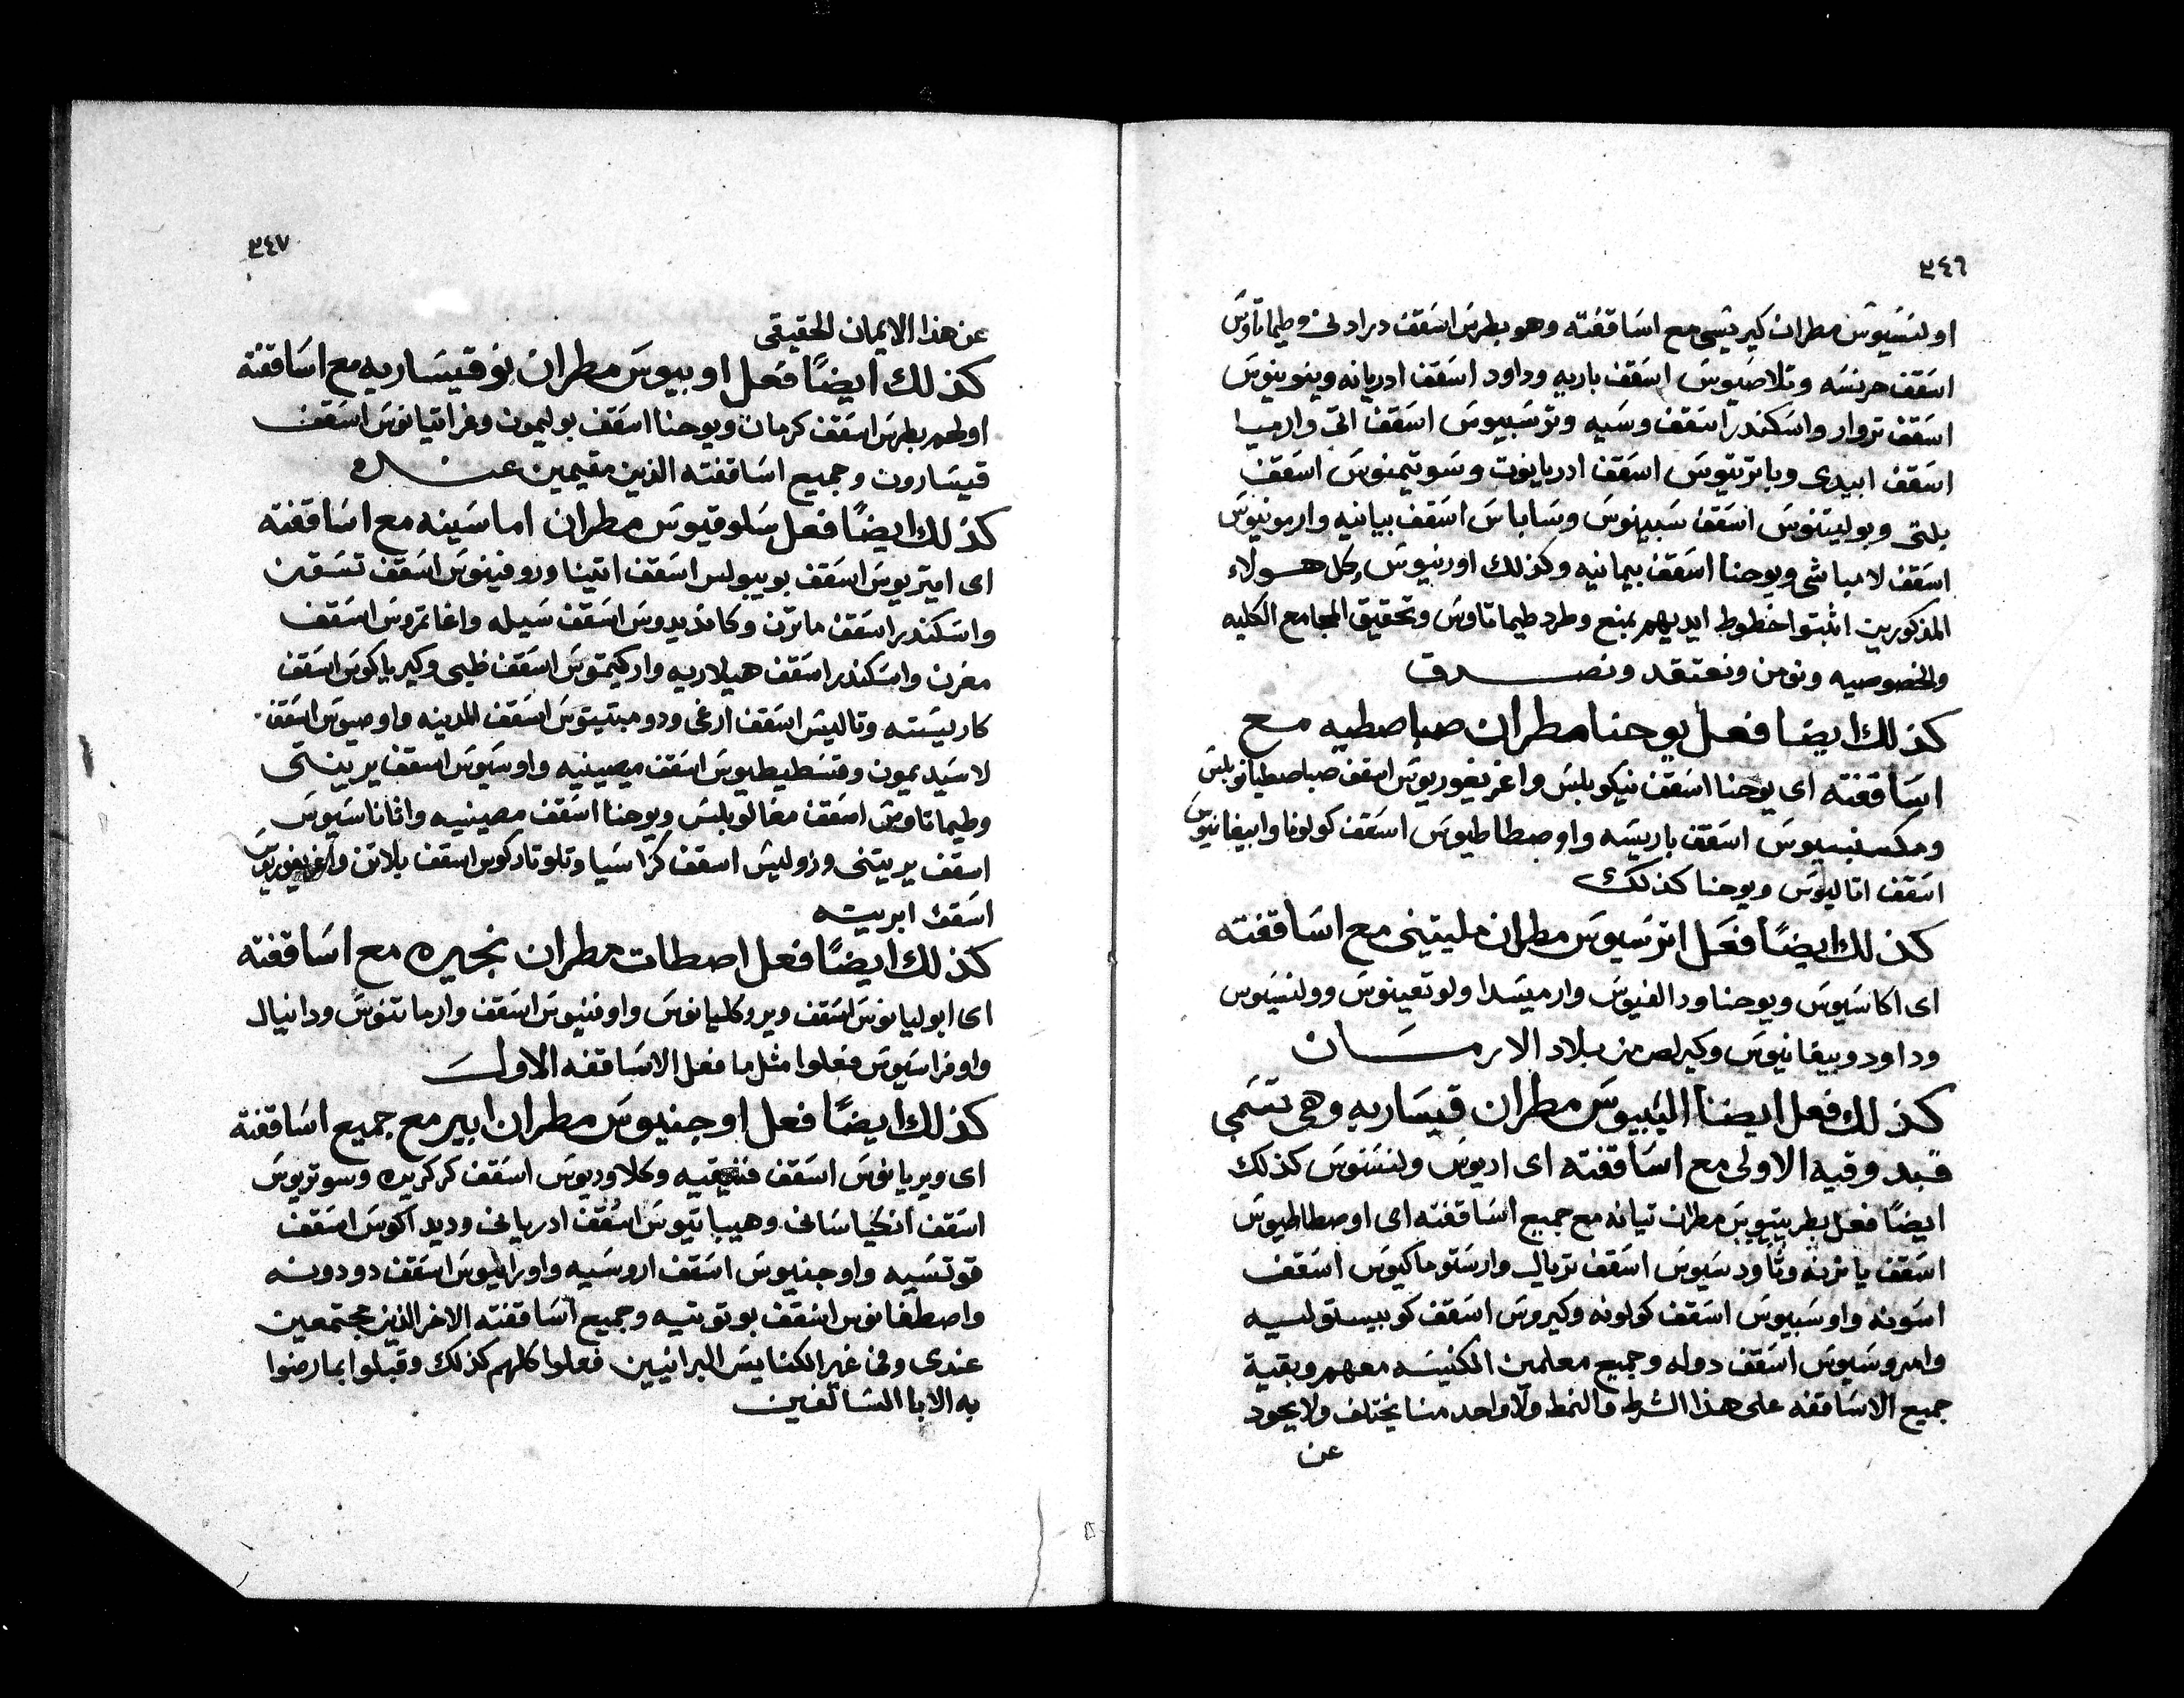 ٣٤٦
اولنسيوس مطران كيريتسى مع اساقفته وهو بطرس اسقف درادلى وطيماتاوس
اسقف هرنسه وتلاصيوس اسقف باريه وداود اسقف ادريانه وينوينوس
اسقف تروار واسكندر اسقف وسيه وترسبيوس اسقف اتى وارميا
اسقف ابيدى وباترتيوس اسقف ادريانوت وسوتيمنوس اسقف
بلتى وبوليتنوس اسقف سبيهنوس وساباس اسقف بيانيه وارمونيوس
اسقف لامباشى ويوحنا اسقف بيمانيه وكذلك اورنيوس وكل هولاء
المذكورين اثبتوا خطوط ايديهم بمنع وطرد طيماتاوس وتحقيق المجامع الكليه
والخصوصيه ونومن ونعتقد ونصدق
كذلك ايضا فعل يوحنا مطران صباصطيه مع
اساقفته اى يوحنا اسقف نيكوبلس واغريغوريوس اسقف صباصطيانوبلس
ومكسنبسيوس اسقف باريسه واوصطاطيوس اسقف كولونا وابيفانيوس
اسقف اتاليوس ويوحنا كذلك
كذلك ايضًا فعل اترسيوس مطران مليتينى مع اساقفته
اى اكاسيوس ويوحنا ودالفنيوس وارميسدا ولوتعينوس وولنسيوس
وداود وبيفانيوس وكيرلص من بلاد الارمـسـان
كذلك فعل ايضا اليبيوس مطران قيساريه وهى تسمى
قبدوقيه الاولى مع اساقفته اى اريوس ولنسنوس كذلك
ايضًا فعل بطريتيوس مطران تيانه مع جميع اساقفته اى اوصطاطيوس
اسقف پاترنه وتاودسيوس اسقف تربال وارستوماكيوس اسقف
اسونه واوسبيوس اسقف كولونه وكيروس اسقف كوبيستولسيه
وامروسيوس اسقف دوله وجميع معلمين الكنيسه معهم وبقية
جميع الاساقفه على هذا الشرط والنمط ولا واحد منا يختلف ولا يحود
عن
٣٤٧
عن هذا الايمان الحقيقى
كذلك ايضًا فعل اوبيوس مطران نوقيساريه مع اساقفته
اولهم بطرس اسقف كرمان ويوحنا اسقف بوليمون وفراتيانوس اسقف
قيسارون وجميع اساقفته الذين مقيمين عنده
كذلك ايضًا فعل سلوقيوس مطران اماسينه مع اساقفته
اى امتريوس اسقف بوبيبولس اسقف اتينا وروفينوس اسقف تسقن
واسكندر اسقف ماترن وكانديدوس اسقف سيله واغاتمروس اسقف
مغرن واسكندر اسقف هيلاريه واركيتموس اسقف ظيى وكيرياكوس اسقف
كاريسته وتاليس اسقف ارغى ودومبتيتوس اسقف المدينه واوصيوس اسقف
لاسيديمون وقسطيطيوس اسقف ميصينيه واوسيوس اسقف يرينتى
وطيماتاوس اسقف مغالوبلس ويوحنا اسقف مصينيه واثاناسيوس
اسقف يريتنى وزوليس اسقف كراسيا وتلوتاركوس اسقف بلاتن واغريغوريوس
اسقف ابريته
كذلك ايضًا فعل اصطات مطران نجيره مع اساقفته
اى ابوليانوس اسقف ويروكليانوس واوفنيوس اسقف وارماتنوس ودانيال
واوفراسيوس فعلوا مثل ما فعل الاساقفه الاول
كذلك ايضًا فعل اوجنيوس مطران ابير مع جميع اساقفته
اى ويريانوس اسقف فنيقيه وكلاوديوس اسقف كركريه وسوتريوس
اسقف انكياسانى وهيباتيوس اسقف ادريانى وديداكوس اسقف
قوتسيه واوجنيوس اسقف اروسيه واوراليوس اسقف دودونه
واصطفانوس اسقف بوتوتيه وجميع اساقفته الاخر الذين مجتمعين
عندى وفى غير الكنايس البرانيين فعلوا كلهم كذلك وقبلوا بما رضوا
به الابا السالفين